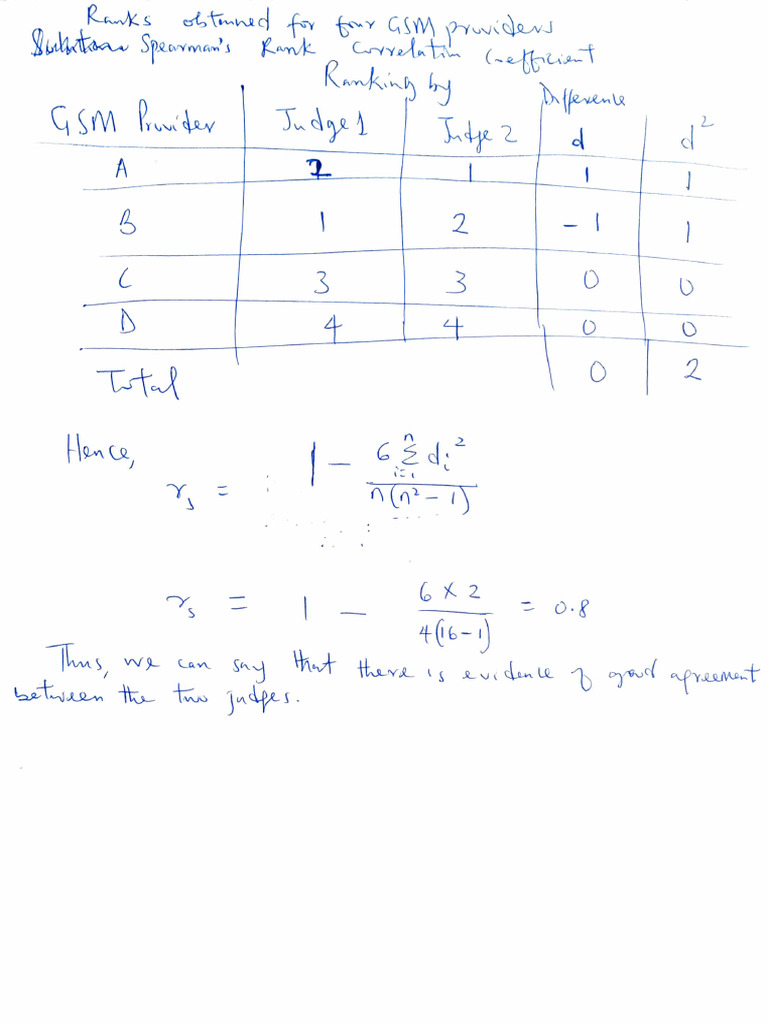 Ranks obtained for four GSM providers
Spearman's Rank Correlation Coefficient
Ranking by
GSM Provider Judge 1 Judge 2 Difference d d²
A 2 1 1 1
B 1 2 -1 1
C 3 3 0 0
D 4 4 0 0
Total 0 2
Hence,
r_s = 1 - 6 Σ_{i=1}^{n} d_i² / n(n² - 1)
r_s = 1 - 6 x 2 / 4(16-1) = 0.8
Thus, we can say that there is evidence of good agreement
between the two judges.